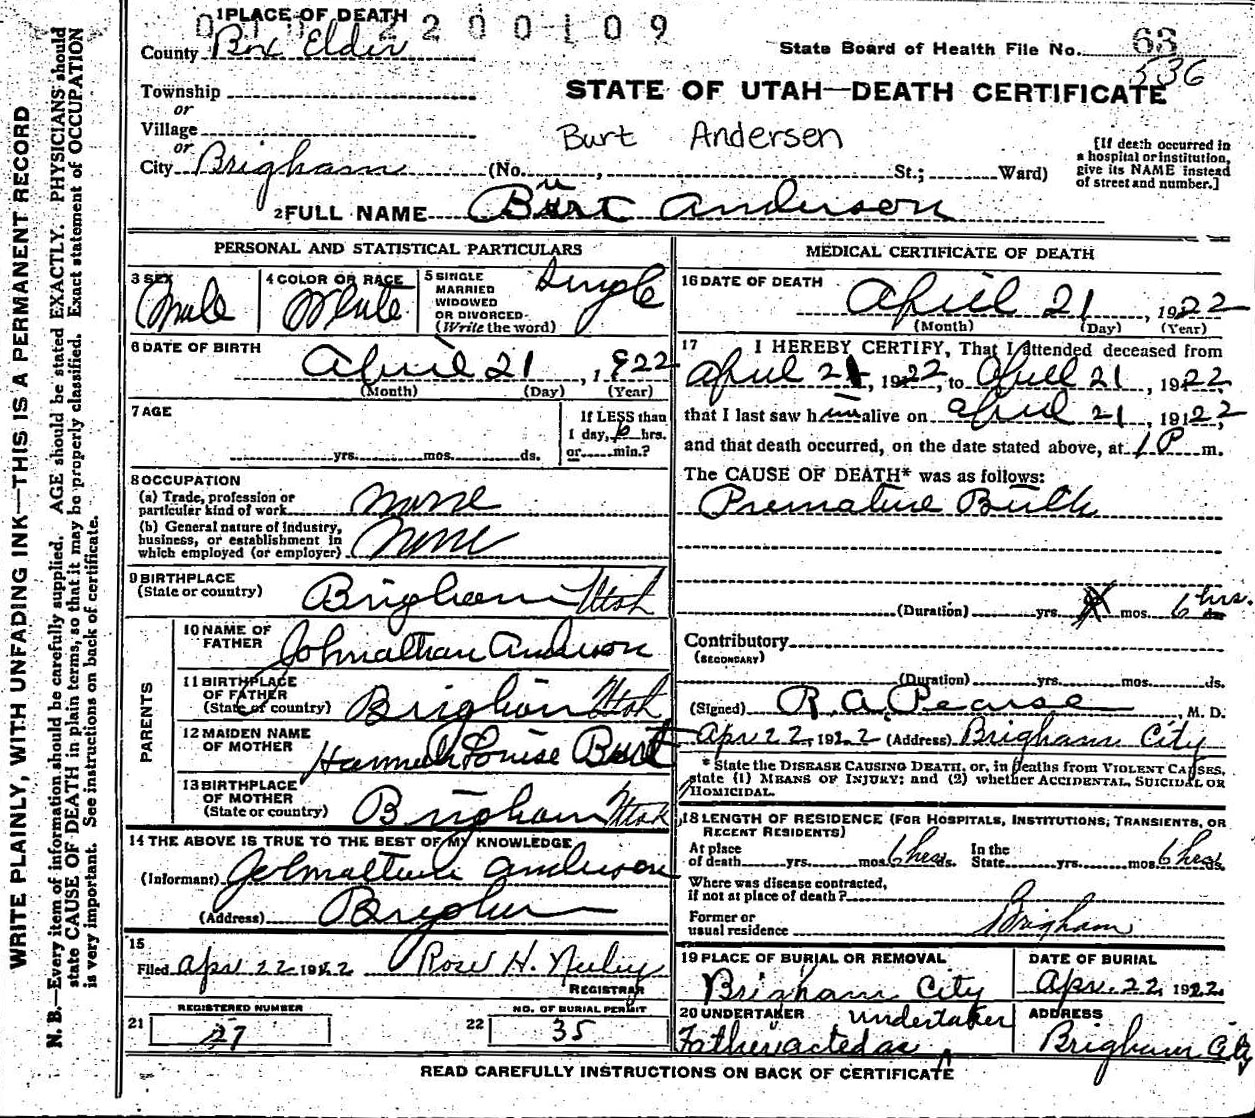 1 PLACE OF DEATH
2200109
County Box Elder
State Board of Health File No. 63
536
Township
or
STATE OF UTAH—DEATH CERTIFICATE
Village
or
Burt Andersen
City Brigham (No. , St.; Ward)
[If death occurred in a hospital or institution, give its NAME instead of street and number.]
2 FULL NAME Burt Anderson
PERSONAL AND STATISTICAL PARTICULARS
3 SEX Male
4 COLOR OR RACE White
5 SINGLE MARRIED WIDOWED OR DIVORCED (Write the word) Single
6 DATE OF BIRTH April 21, 1922
(Month) (Day) (Year)
7 AGE yrs. mos. ds.
If LESS than
1 day, 6 hrs.
or min.?
8 OCCUPATION
(a) Trade, profession or
particular kind of work None
(b) General nature of industry,
business, or establishment in
which employed (or employer) None
9 BIRTHPLACE
(State or country) Brigham Utah
PARENTS
10 NAME OF
FATHER Johnathan Anderson
11 BIRTHPLACE
OF FATHER
(State or country) Brigham Utah
12 MAIDEN NAME
OF MOTHER Hannah Louise Burt
13 BIRTHPLACE
OF MOTHER
(State or country) Brigham Utah
14 THE ABOVE IS TRUE TO THE BEST OF MY KNOWLEDGE
(Informant) Johnathan Anderson
(Address) Brigham
15
Filed Apr 22 1922 Rose H. Neeley
REGISTRAR
REGISTERED NUMBER
21 27
NO. OF BURIAL PERMIT
22 35
MEDICAL CERTIFICATE OF DEATH
16 DATE OF DEATH April 21, 1922
(Month) (Day) (Year)
17 I HEREBY CERTIFY, That I attended deceased from
April 21, 1922, to April 21, 1922
that I last saw him alive on April 21, 1922,
and that death occurred, on the date stated above, at 1 P m.
The CAUSE OF DEATH* was as follows:
Premature Birth
(Duration) yrs. mos. 6 hrs.
Contributory
(SECONDARY)
(Duration) yrs. mos. ds.
(Signed) R. A. Pearse, M. D.
Apr 22, 1922 (Address) Brigham City
* State the DISEASE CAUSING DEATH, or, in deaths from VIOLENT CAUSES,
state (1) MEANS OF INJURY; and (2) whether ACCIDENTAL, SUICIDAL OR
HOMICIDAL.
18 LENGTH OF RESIDENCE (FOR HOSPITALS, INSTITUTIONS, TRANSIENTS, OR
RECENT RESIDENTS)
At place In the
of death yrs. mos. 6 hrs. State yrs. mos. 6 hrs.
Where was disease contracted,
if not at place of death?
Former or
usual residence Brigham
19 PLACE OF BURIAL OR REMOVAL
Brigham City
DATE OF BURIAL
Apr. 22, 1922
20 UNDERTAKER undertaker
Father acted as
ADDRESS
Brigham City
READ CAREFULLY INSTRUCTIONS ON BACK OF CERTIFICATE
WRITE PLAINLY, WITH UNFADING INK—THIS IS A PERMANENT RECORD
N. B.—Every item of information should be carefully supplied. AGE should be stated EXACTLY. PHYSICIANS should
state CAUSE OF DEATH in plain terms, so that it may be properly classified. Exact statement of OCCUPATION
is very important. See instructions on back of certificate.